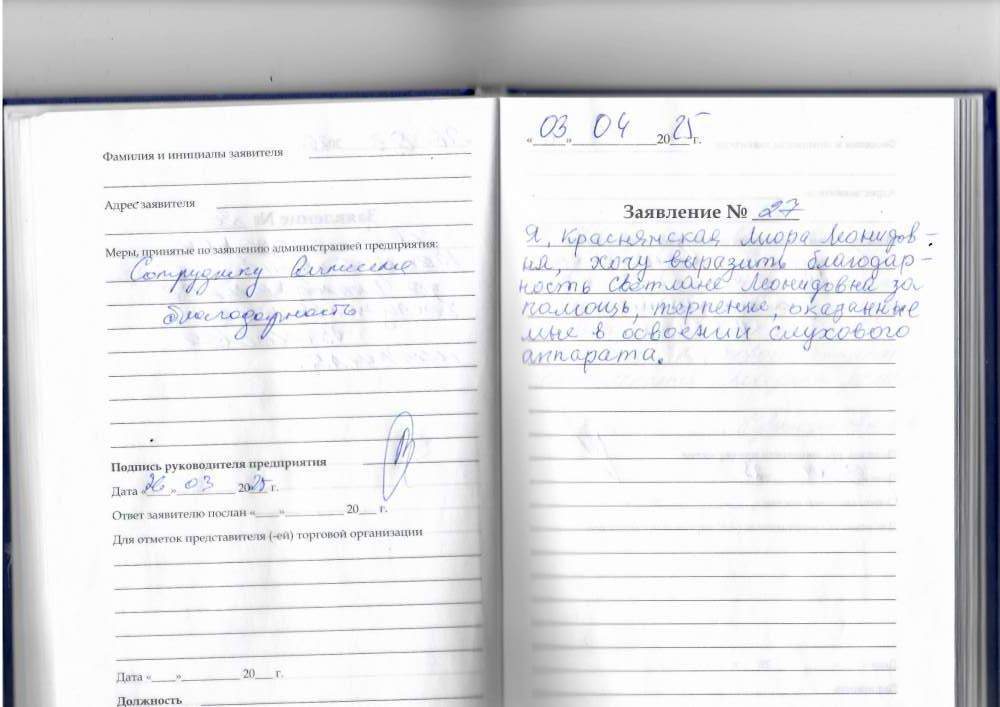 Фамилия и инициалы заявителя
Адрес заявителя
Меры, принятые по заявлению администрацией предприятия:
Сотруднику
благодарность
Подпись руководителя предприятия
Дата «26» 03 2025 г.
Ответ заявителю послан «___»__________ 20___ г.
Для отметок представителя (-ей) торговой организации
Дата «___»__________ 20___ г.
Должность
«03» 04 2025 г.
Заявление № 27
Я, Краснянская Лиора Леонидов-
на, хочу выразить благодар-
ность Светлане Леонидовне за
помощь, терпение, оказанные
мне в освоении слухового
аппарата.